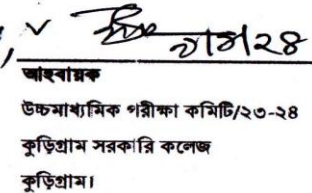 আহবায়ক
উচ্চমাধ্যমিক পরীক্ষা কমিটি/২৩-২৪
কুড়িগ্রাম সরকারি কলেজ
কুড়িগ্রাম।